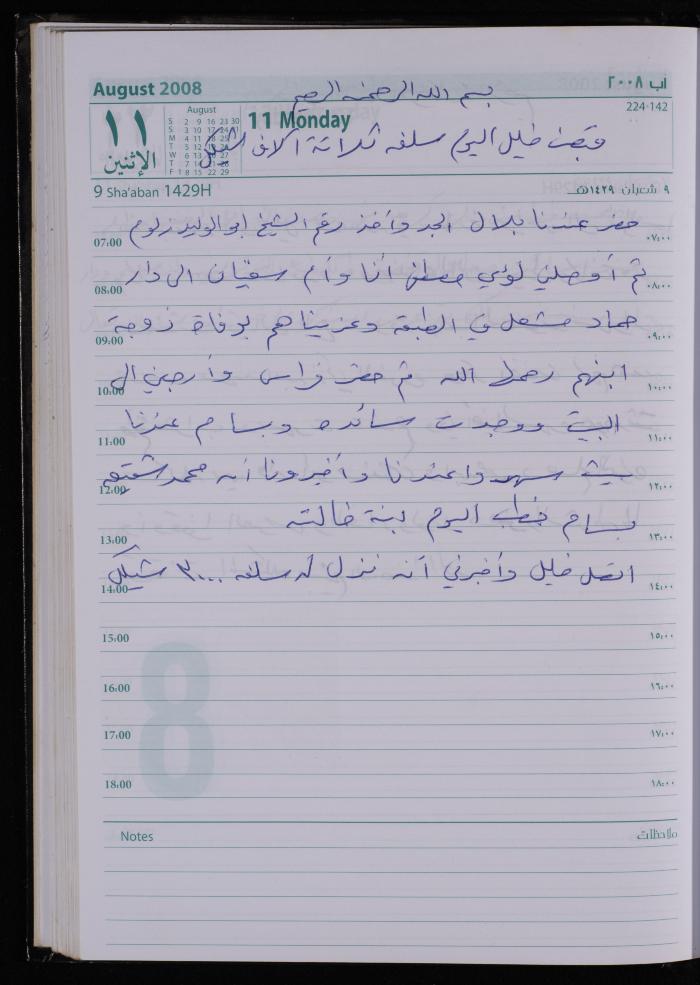 August 2008
آب ٢٠٠٨
بسم الله الرحمن الرحيم
224-142
١١
الإثنين
August
S 2 9 16 23 30
S 3 10 17 24
M 4 11 18 25
T 5 12
W 6 13 20 27
T 7 14 21 28
F 1 8 15 22 29
11 Monday
قبض خليل اليوم سلفه ثلاثة آلاف شيكل
9 Sha'aban 1429H
٩ شعبان ١٤٢٩هـ
حضر عندنا بلال الجد وأخذ رقم الشيخ ابو الوليد زلوم
07:00 ٠٧:٠٠
ثم أوصلني لؤي مصطفى أنا وأم سفيان الى دار
08:00 ٠٨:٠٠
حماد مشعل في الطبقة وعزيناهم بوفاة زوجة
09:00 ٠٩:٠٠
ابنهم رحمها الله ثم حضر فراس وأرجعني الى
10:00 ١٠:٠٠
البيت ووجدت سائده وبسام عندنا
11:00 ١١:٠٠
حيث سهروا عندنا وأخبرونا أن محمد شقيق
12:00 ١٢:٠٠
بسام خطب اليوم بنة خالته
13:00 ١٣:٠٠
اتصل خليل وأخبرني أنه نزل له سلفه ٣٠٠٠ شيكل
14:00 ١٤:٠٠
15:00 ١٥:٠٠
16:00 ١٦:٠٠
17:00 ١٧:٠٠
18:00 ١٨:٠٠
8
Notes
ملاحظات